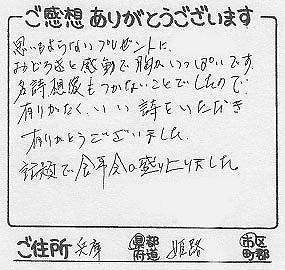 ご感想ありがとうございます
思いもよらないプレゼントに、
おどろきと感動で胸がいっぱいです。
名詩想像もつかないことでしたので
有りがたく、いい詩をいただき
有りがとうございました。
話題で 会 盛り上りました
ご住所 兵庫 都道府県 姫路 市区町郡